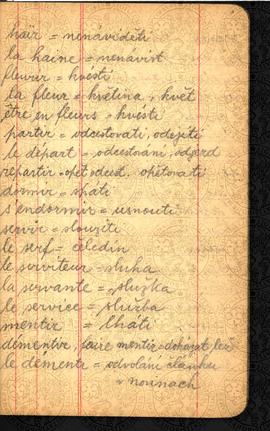 haïr = nenáviděti
la haine = nenávist
fleurir = kvésti
la fleur = květina, květ
être en fleurs = kvésti
partir = odcestovati, odejeti
le départ = odcestování, odjezd
repartir = opět odcest, opětovati
dormir = spáti
s'endormir = usnouti
servir = sloužiti
le serf = čeledín
le serviteur = sluha
la servante = služka
le service = služba
mentir = lháti
démentir, faire mentir = dokázat lež
le démenti = odvolání článku
v novinách